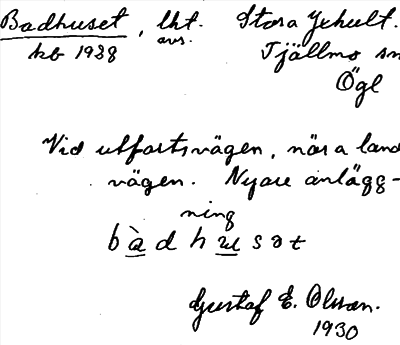 Badhuset, lht. Stora Yxhult.
avs.
hb 1938 Tjällmo sn
Ögl
Vid utfartsvägen, nära land
vägen. Nyare anlägg-
ning
bàdhusət
Gustaf E. Olsson.
1930